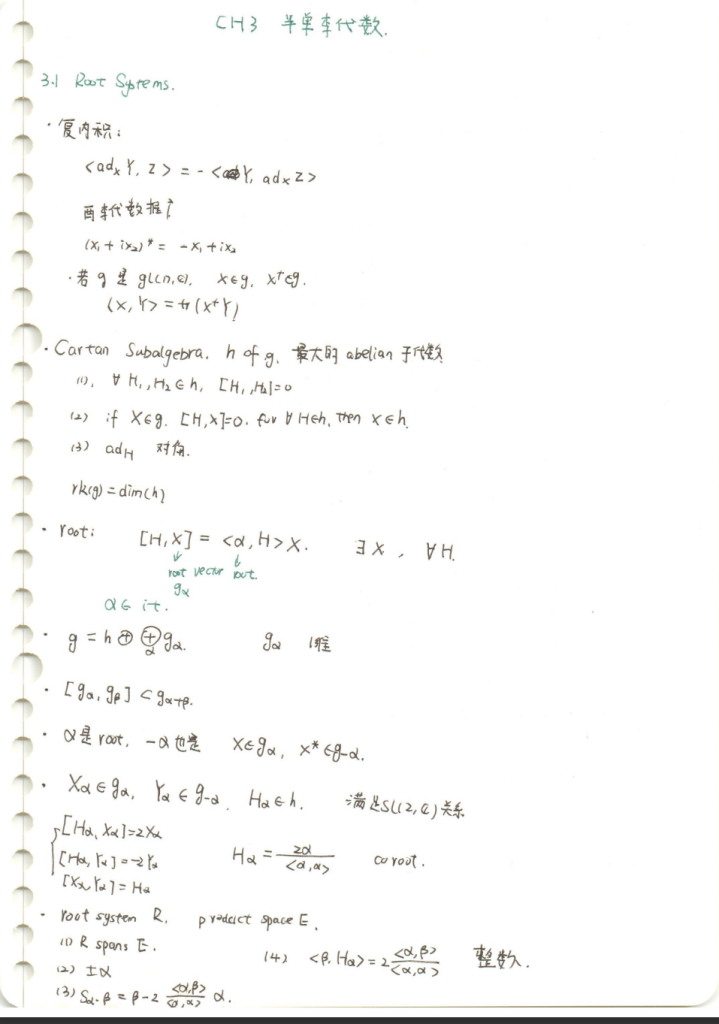 CH3 半单李代数.
3.1 Root Systems.
· 复内积:
<ad_x Y, Z> = - <Y, ad_x Z>
(X₁ + iX₂)* = -X₁ + iX₂
· 若 g 是 gl(n,C), X∈g, X†∈g.
<X, Y> = tr(X†Y)
· Cartan Subalgebra. h of g. 最大的 abelian 子代数
(1). ∀ H₁, H₂ ∈ h, [H₁, H₂]=0
(2) if X∈g. [H,X]=0. for ∀ H∈h, then X∈h.
(3) ad_H 对角.
rk(g) = dim(h)
· root: [H,X] = <α,H>X. ∃ X , ∀H.
↓ ↓
root vector root.
g_α
α ∈ it.
· g = h ⊕ ⊕_α g_α. g_α 1维
· [g_α, g_β] ⊂ g_α+β.
· α是 root, -α 也是 X∈g_α, X* ∈g_-α.
· X_α ∈ g_α, Y_α ∈ g_-α, H_α ∈ h. 满足SL(2,C)关系
{ [H_α, X_α]=2X_α
[H_α, Y_α]=-2Y_α H_α = 2α / <α,α> coroot.
[X_α, Y_α] = H_α
· root system R. product space E.
(1) R spans E. (4) <β, H_α> = 2 <α,β> / <α,α> 整数.
(2) ±α
(3) S_α·β = β-2 <α,β> / <α,α> α.